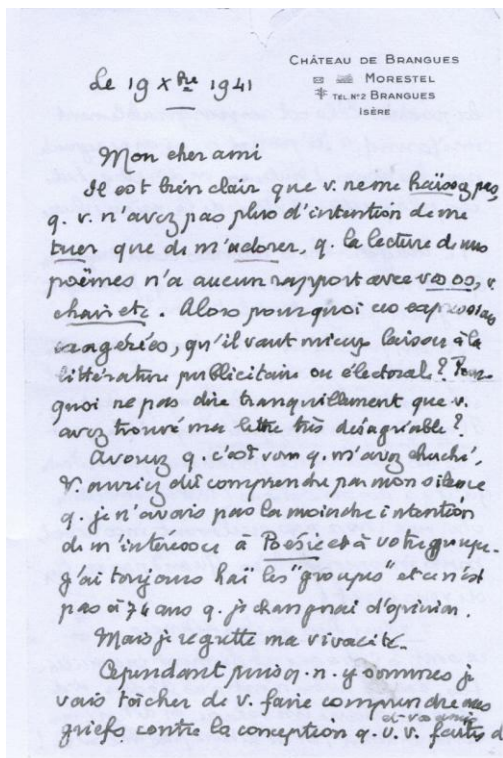 CHÂTEAU DE BRANGUES
MORESTEL
TEL. Nº2 BRANGUES
ISÈRE
Le 19 Xbre 1941
Mon cher ami
Il est bien clair que v. ne me haïssez pas
q. v. n'avez pas plus d'intention de me
tuer que de m'adorer, q. la lecture de mes
poëmes n'a aucun rapport avec vos os, v.
chair etc. Alors pourquoi ces expressions
exagérées, qu'il vaut mieux laisser à la
littérature publicitaire ou électorale ? Pour
quoi ne pas dire tranquillement que v.
avez trouvé ma lettre très désagréable ?
Avouez q. c'est vous q. m'avez cherché.
V. auriez dû comprendre par mon silence
q. je n'avais pas la moindre intention
de m'intéresser à Poésie et à votre groupe.
J'ai toujours haï les "groupes" et ce n'est
pas à 74 ans q. je changerai d'opinion.
Mais je regrette ma vivacité.
Cependant puisq. n. y sommes je
vais tâcher de v. faire comprendre mes
griefs contre la conception q. v. v. faites d